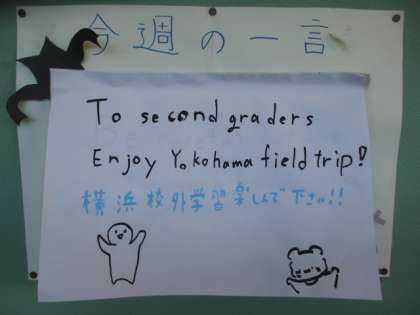 今週の一言
To second graders
Enjoy Yokohama field trip!
横浜校外学習楽しんで下さい!!